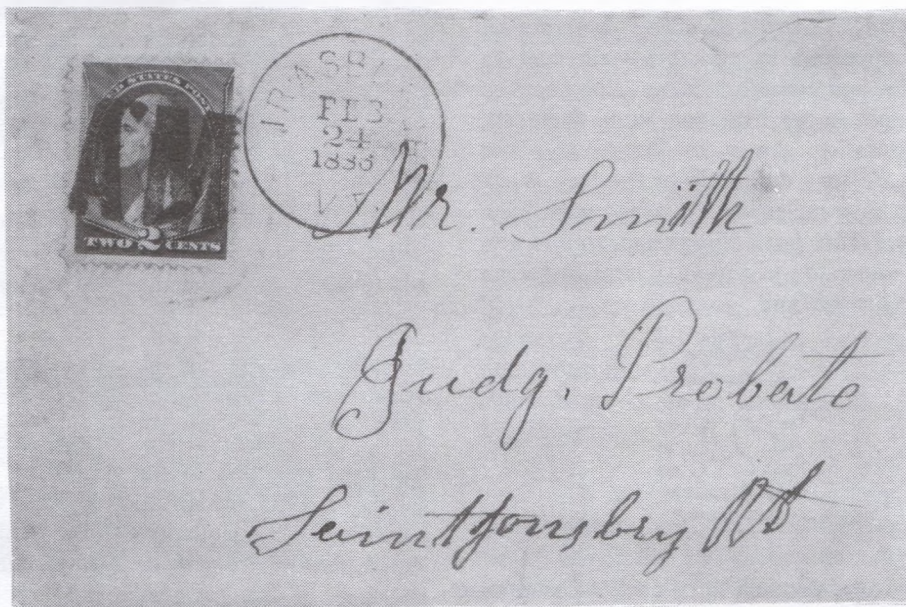 UNITED STATES POST
TWO 2 CENTS
IRASB
FEB
24
1886
VT.
Mr. Smith
Judg. Probate
Saintjonsbry